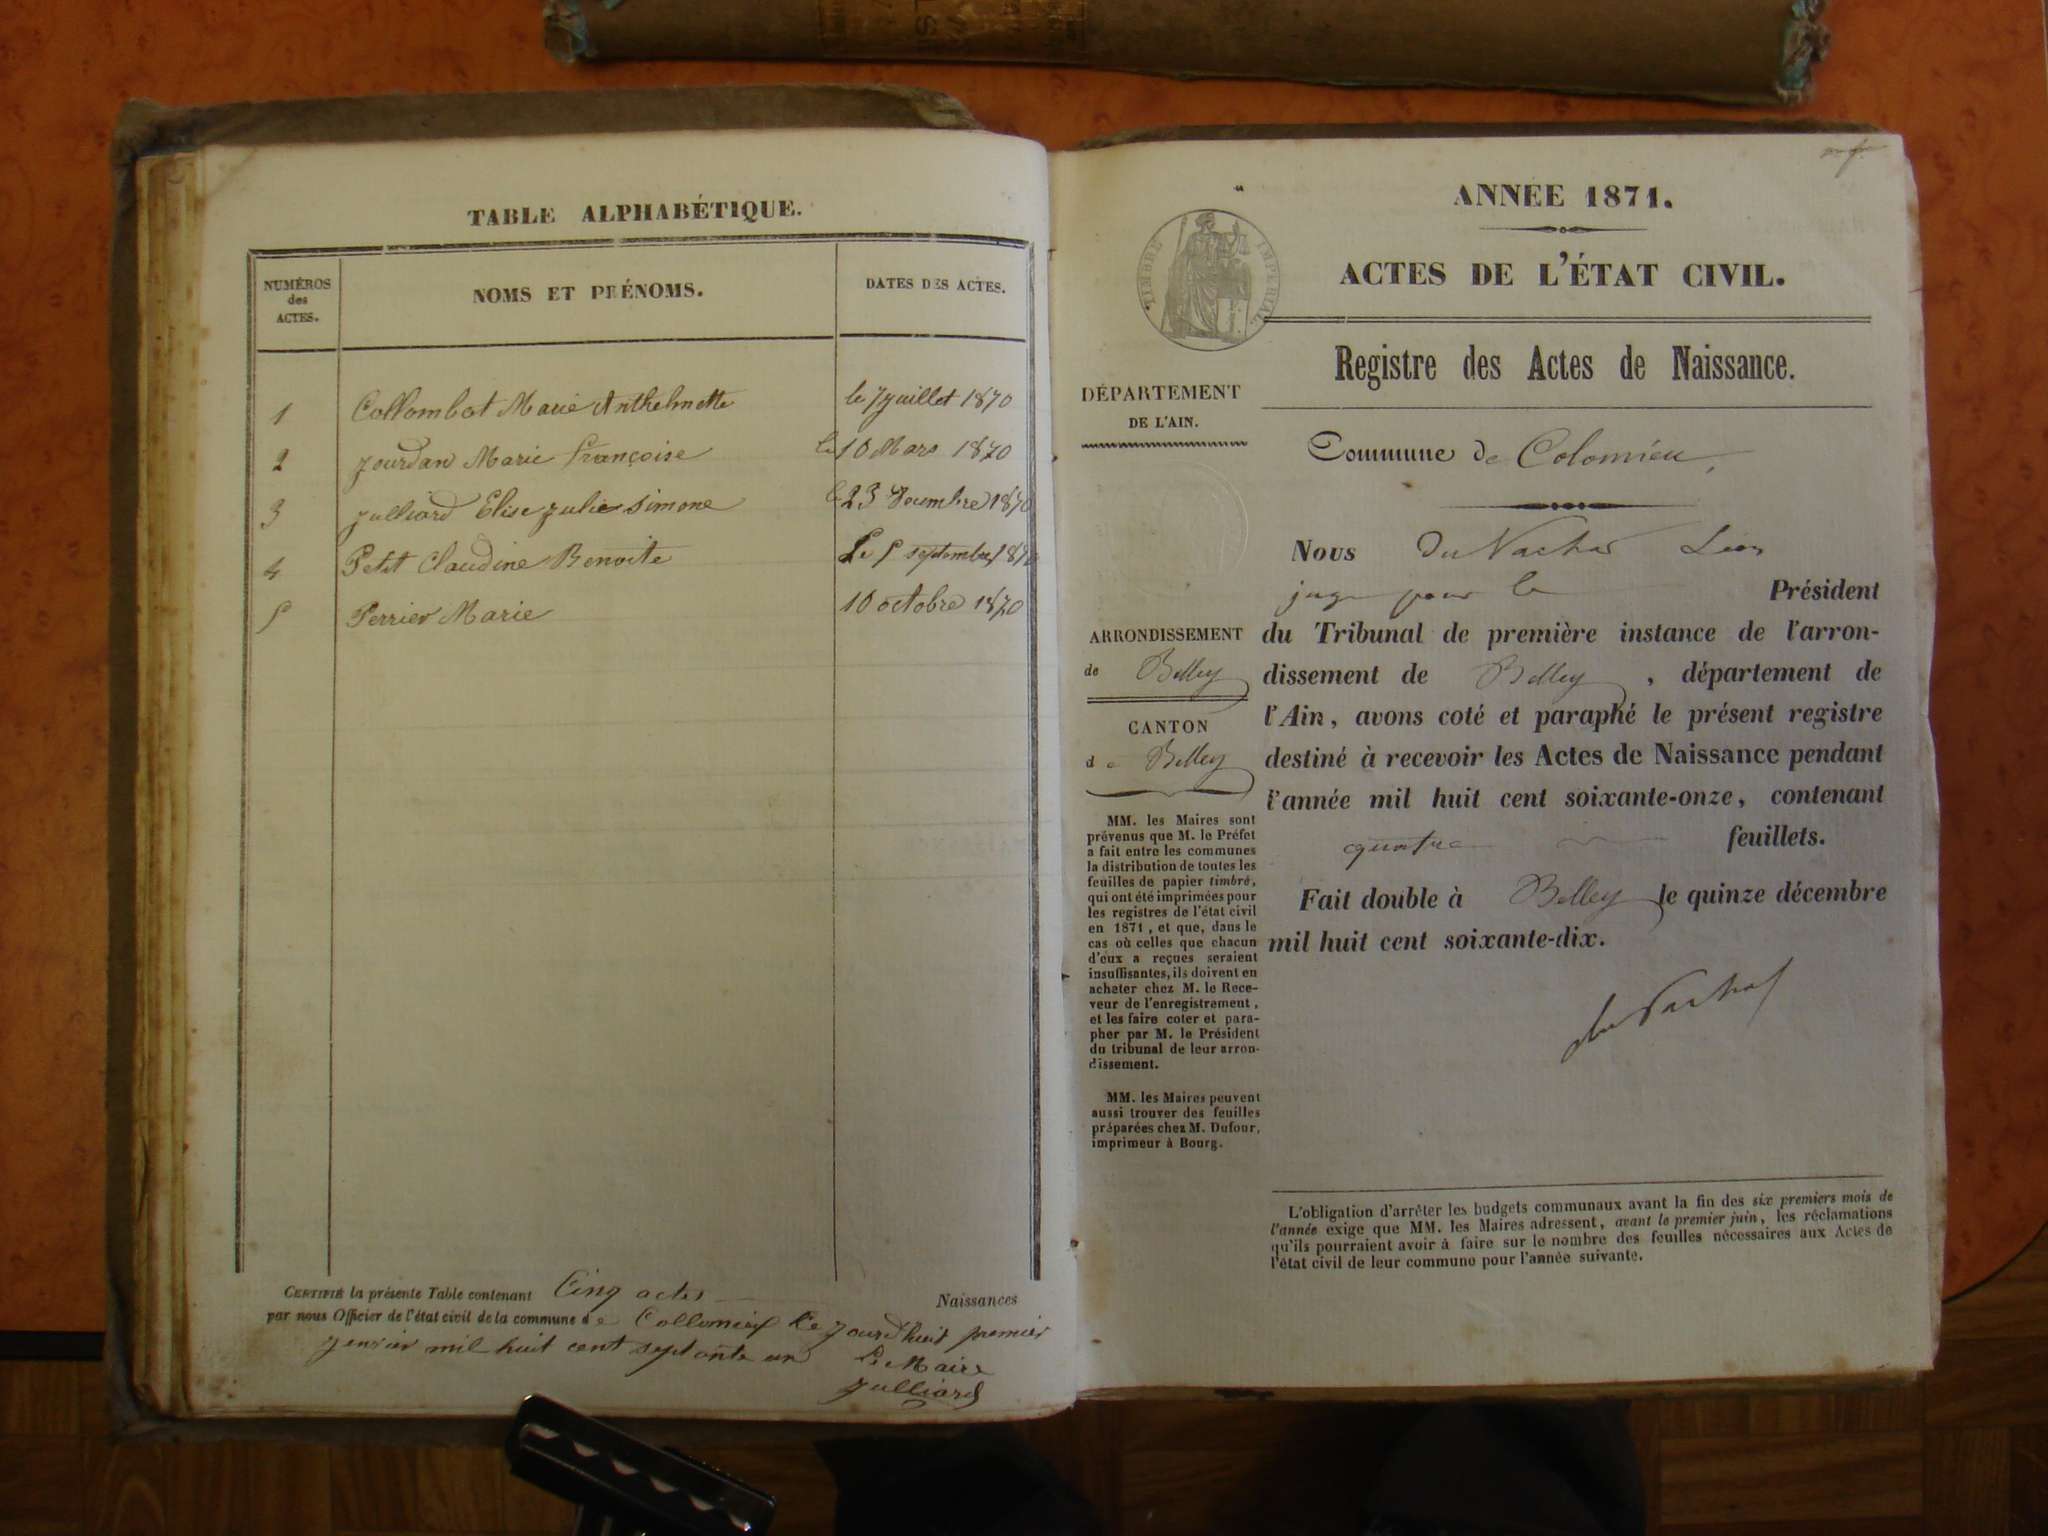 TABLE ALPHABÉTIQUE.
NUMÉROS
des
ACTES.
NOMS ET PRÉNOMS.
DATES DES ACTES.
1 Collombat Marie Anthelmette le 7 juillet 1870
2 jourdan Marie françoise Le 10 Mars 1870
3 julliard Elise julie simone Le 23 Decembre 1870
4 Petit Claudine Benoite Le 5 septembre 1870
5 Perrier Marie 10 octobre 1870
CERTIFIÉ la présente Table contenant Cinq actes Naissances
par nous Officier de l'état civil de la commune de Collomieux Ce jourd'huit premier
jenvier mil huit cent septante un Le Maire
julliard
ANNÉE 1871.
ACTES DE L'ÉTAT CIVIL.
TIMBRE IMPÉRIAL
Registre des Actes de Naissance.
DÉPARTEMENT
DE L'AIN.
Commune de Colomieu,
Nous Du Nachat Léon
juge pour le Président
du Tribunal de première instance de l'arron-
dissement de Belley, département de
l'Ain, avons coté et paraphé le présent registre
destiné à recevoir les Actes de Naissance pendant
l'année mil huit cent soixante-onze, contenant
quatre feuillets.
Fait double à Belley le quinze décembre
mil huit cent soixante-dix.
du Nachat
ARRONDISSEMENT
de Belley
CANTON
de Belley
MM. les Maires sont
prévenus que M. le Préfet
a fait entre les communes
la distribution de toutes les
feuilles de papier timbré,
qui ont été imprimées pour
les registres de l'état civil
en 1871, et que, dans le
cas où celles que chacun
d'eux a reçues seraient
insuffisantes, ils doivent en
acheter chez M. le Rece-
veur de l'enregistrement,
et les faire coter et para-
pher par M. le Président
du tribunal de leur arron-
dissement.
MM. les Maires peuvent
aussi trouver des feuilles
préparées chez M. Dufour,
imprimeur à Bourg.
L'obligation d'arrêter les budgets communaux avant la fin des six premiers mois de
l'année exige que MM. les Maires adressent, avant le premier juin, les réclamations
qu'ils pourraient avoir à faire sur le nombre des feuilles nécessaires aux Actes de
l'état civil de leur commune pour l'année suivante.